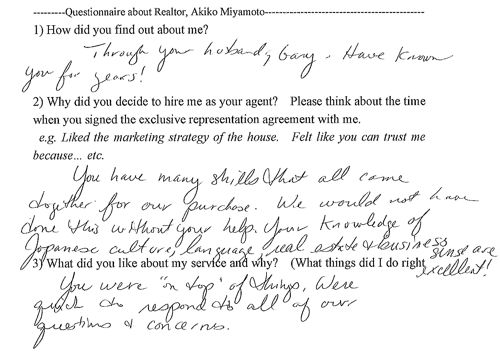 ---------Questionnaire about Realtor, Akiko Miyamoto----------------------------------------
1) How did you find out about me?
Through your husband, Gary. Have known
you for years!
2) Why did you decide to hire me as your agent? Please think about the time
when you signed the exclusive representation agreement with me.
e.g. Liked the marketing strategy of the house. Felt like you can trust me
because... etc.
You have many skills that all come
together for our purchase. We would not have
done this without your help. Your knowledge of
Japanese culture, language real estate & business sense are
excellent!
3) What did you like about my service and why? (What things did I do right
You were "on top" of things, Were
quick to respond to all of our
questions & concerns.